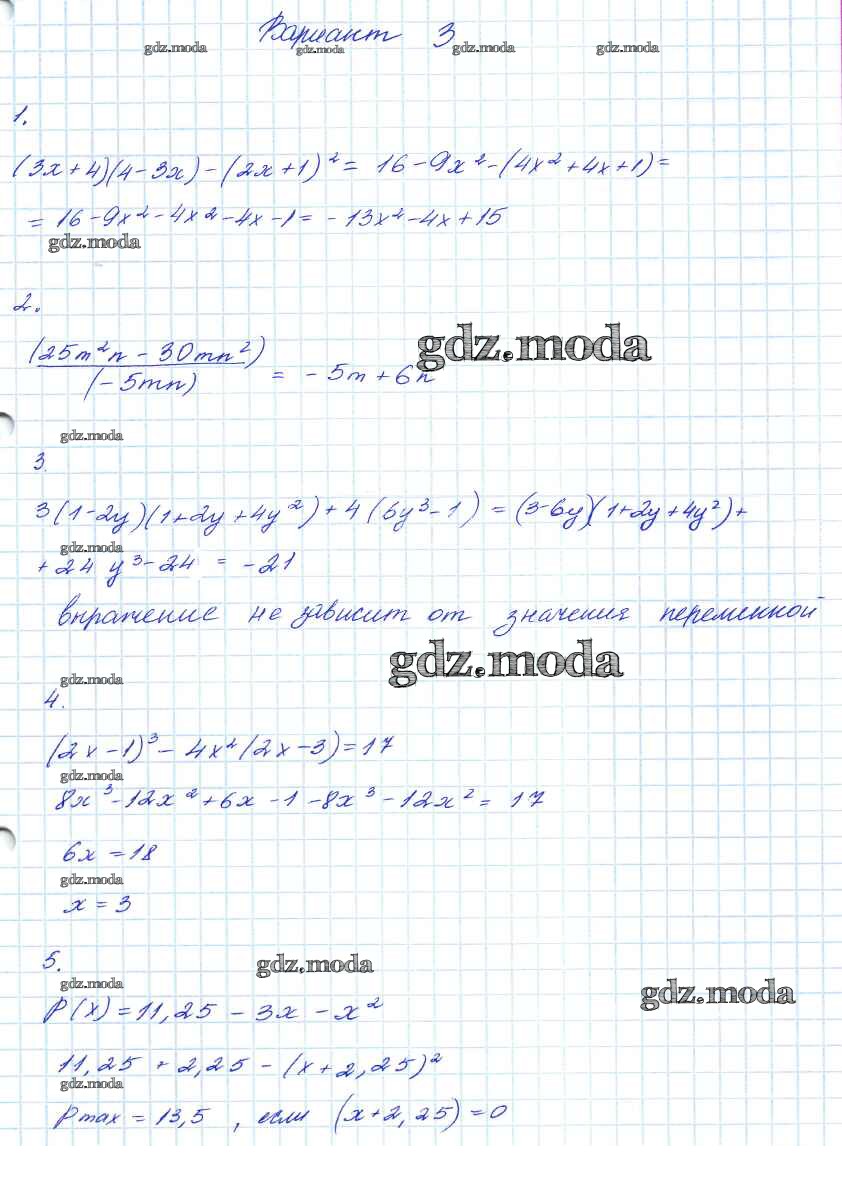 Вариант 3
gdz.moda gdz.moda gdz.moda gdz.moda
1.
(3x+4)(4-3x)-(2x+1)² = 16-9x²-(4x²+4x+1)=
= 16-9x²-4x²-4x-1= -13x²-4x+15
gdz.moda
2.
(25m²n - 30mn²)
gdz.moda
(-5mn) = -5m+6n
gdz.moda
3.
3(1-2y)(1+2y+4y²)+4(6y³-1) = (3-6y)(1+2y+4y²)+
gdz.moda
+24y³-24 = -21
выражение не зависит от значения переменной
gdz.moda
gdz.moda
4.
(2x-1)³- 4x²(2x-3)=17
gdz.moda
8x³-12x²+6x-1-8x³-12x²= 17
6x =18
gdz.moda
x = 3
5.
gdz.moda
gdz.moda
gdz.moda
P(x)=11,25 - 3x - x²
11,25 + 2,25 - (x+2,25)²
gdz.moda
Pmax = 13,5 , если (x+2,25)=0